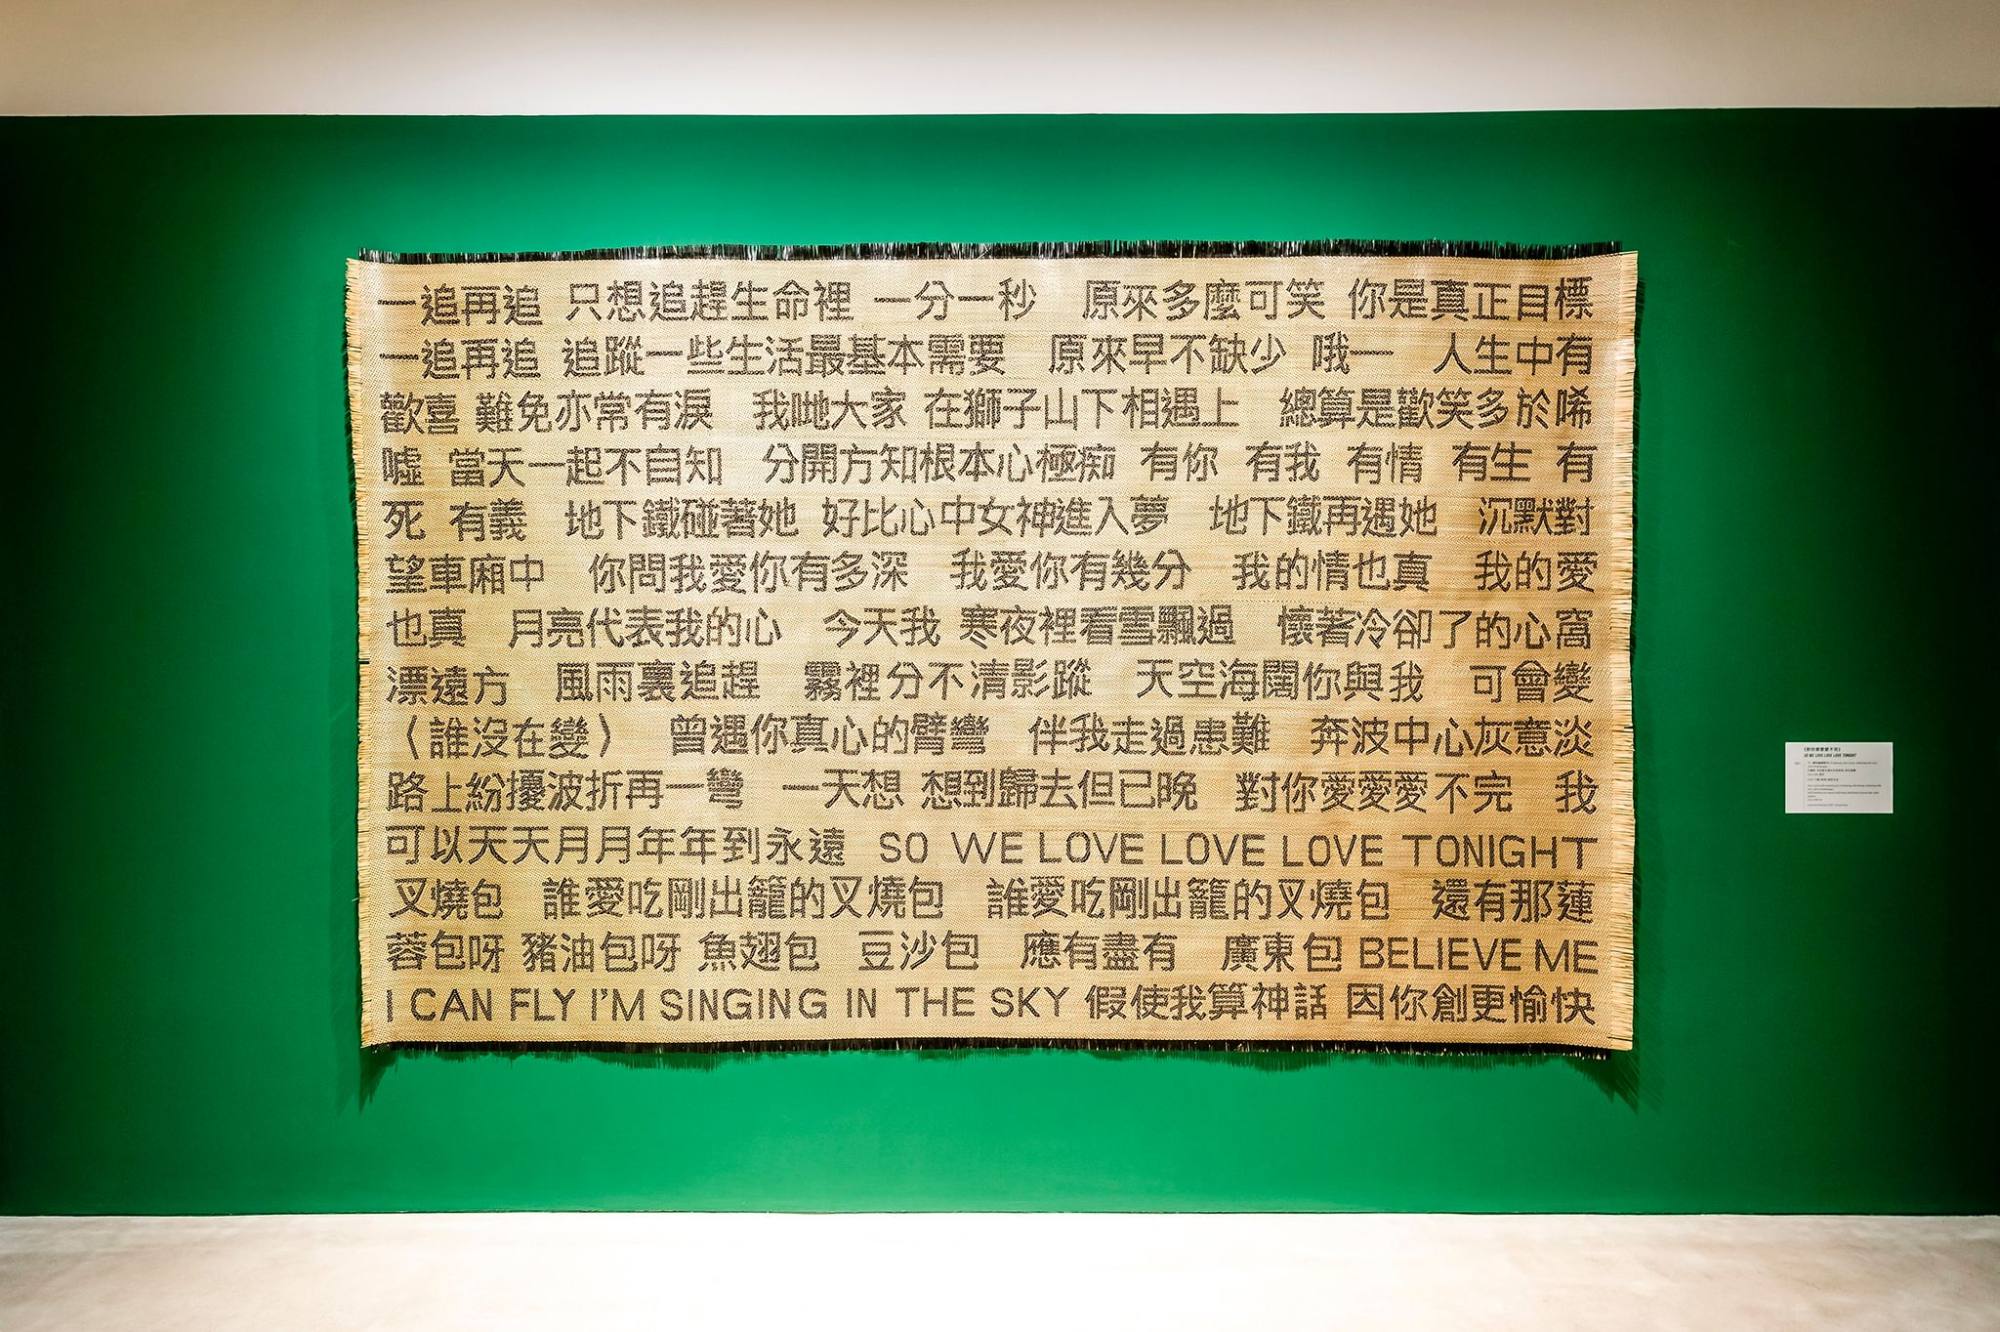 一追再追 只想追趕生命裡 一分一秒 原來多麼可笑 你是真正目標
一追再追 追蹤一些生活最基本需要 原來早不缺少 哦一 人生中有
歡喜 難免亦常有淚 我哋大家 在獅子山下相遇上 總算是歡笑多於唏
噓 當天一起不自知 分開方知根本心極痴 有你 有我 有情 有生 有
死 有義 地下鐵碰著她 好比心中女神進入夢 地下鐵再遇她 沉默對
望車廂中 你問我愛你有多深 我愛你有幾分 我的情也真 我的愛
也真 月亮代表我的心 今天我 寒夜裡看雪飄過 懷著冷卻了的心窩
漂遠方 風雨裏追趕 霧裡分不清影蹤 天空海闊你與我 可會變
（誰沒在變） 曾遇你真心的臂彎 伴我走過患難 奔波中心灰意淡
路上紛擾波折再一彎 一天想 想到歸去但已晚 對你愛愛愛不完 我
可以天天月月年年到永遠 SO WE LOVE LOVE LOVE TONIGHT
叉燒包 誰愛吃剛出籠的叉燒包 誰愛吃剛出籠的叉燒包 還有那蓮
蓉包呀 豬油包呀 魚翅包 豆沙包 應有盡有 廣東包 BELIEVE ME
I CAN FLY I'M SINGING IN THE SKY 假使我算神話 因你創更愉快
SO WE LOVE LOVE LOVE TONIGHT